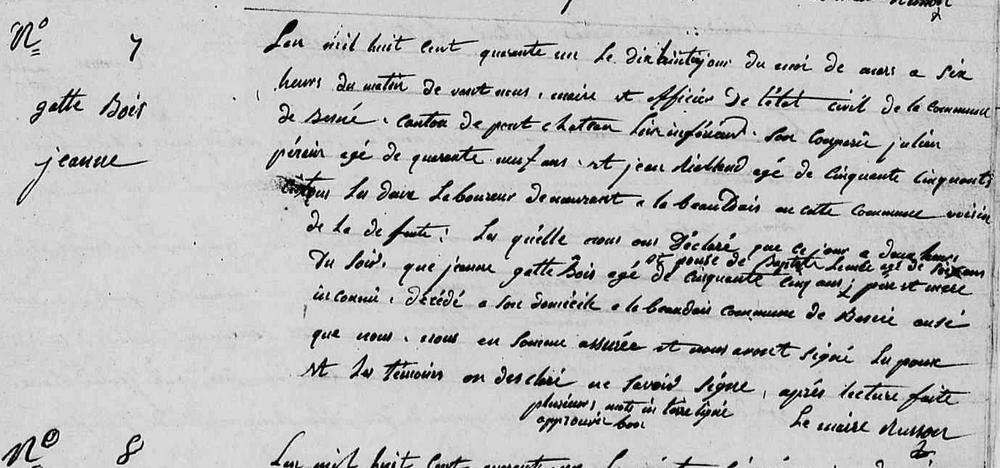 No 7
gatte Bois
jeanne
Lan mil huit cent quarante un Le dixhuit jour du moi de mars a six
heurs du matin de vant nous, maire et officier de l'état civil de la commune
de Besné, canton de pont chattau Loir inférieur. Son Comparu julien
agé de quarante neuf ans, et jean agé de Cinquante Cinq ans
tous Les deux Laboureur demeurant a la beauDais en cette commune voisin
de La de funte; Les quélle nous ont Déclaré que ce jour a deux heurs
et pouse de Baptiste agé de
Du Soir, que jeanne gatte Bois agé de Cinquante Cinq ans, pére et mere
inconnu, décédé a son domicile a la beaudais commune de Besné
que nous, nous en somme assurée et nous avont signé Les
et Les témoins on desclaré ne Savoir signé, aprés lecture faite
plusieurs mots in terre ligné
approuvé bon
Le maire
No 8
Lan mil huit cent quarante un